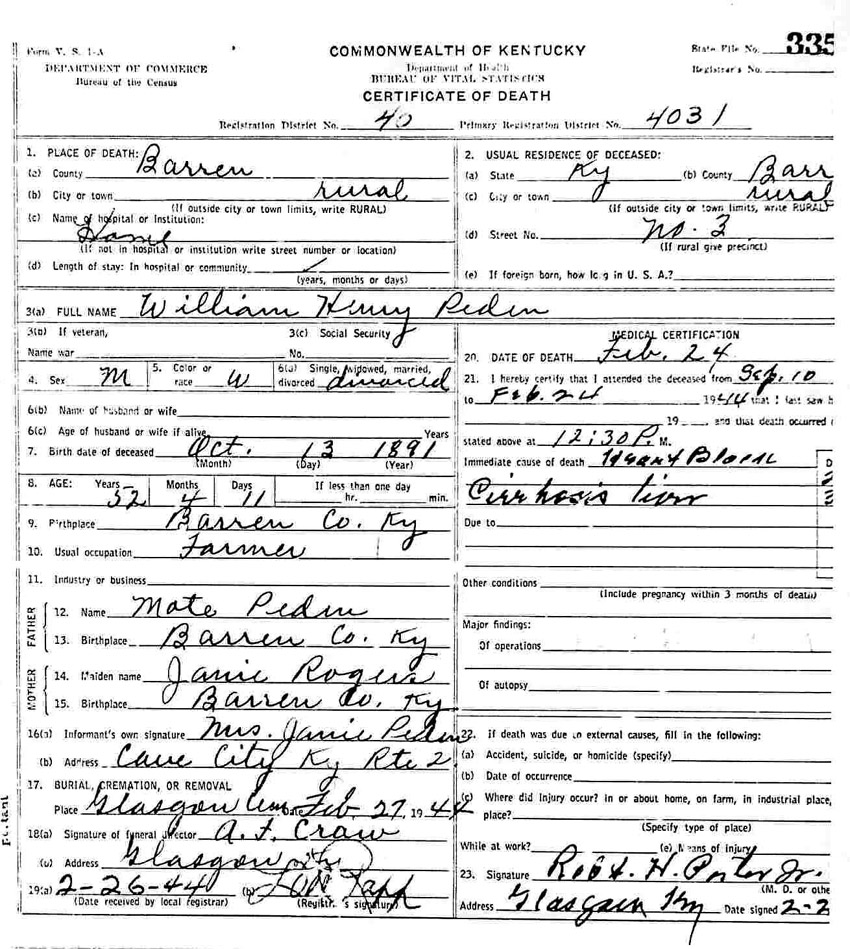 Form V. S. 1-A
DEPARTMENT OF COMMERCE
Bureau of the Census
COMMONWEALTH OF KENTUCKY
Department of Health
BUREAU OF VITAL STATISTICS
CERTIFICATE OF DEATH
State File No. 335
Registrar's No.
Registration District No. 40 Primary Registration District No. 4031
1. PLACE OF DEATH:
(a) County Barren
(b) City or town rural
(If outside city or town limits, write RURAL)
(c) Name of hospital or Institution:
Home
(If not in hospital or institution write street number or location)
(d) Length of stay: In hospital or community
(years, months or days)
2. USUAL RESIDENCE OF DECEASED:
(a) State Ky (b) County Barr
(c) City or town rural
(If outside city or town limits, write RURAL)
(d) Street No. No. 3
(If rural give precinct)
(e) If foreign born, how long in U. S. A.?
3(a) FULL NAME William Henry Peden
3(b) If veteran,
Name war
3(c) Social Security
No.
4. Sex M 5. Color or race W 6(a) Single, widowed, married, divorced divorced
6(b) Name of husband or wife
6(c) Age of husband or wife if alive Years
7. Birth date of deceased Oct. 13 1891
(Month) (Day) (Year)
8. AGE: Years 52 Months 4 Days 11 If less than one day
hr. min.
9. Birthplace Barren Co. Ky
10. Usual occupation Farmer
11. Industry or business
FATHER
12. Name Mote Peden
13. Birthplace Barren Co. Ky
MOTHER
14. Maiden name Janie Rogers
15. Birthplace Barren Co. Ky
16(a) Informant's own signature Mrs. Janie Peden
(b) Address Cave City Ky Rte 2
17. BURIAL, CREMATION, OR REMOVAL
Place Glasgow Cem Date Feb. 27 1944
18(a) Signature of funeral director A. F. Crow
(b) Address Glasgow Ky
19(a) 2-26-44 (b)
(Date received by local registrar) (Registrar's signature)
MEDICAL CERTIFICATION
20. DATE OF DEATH Feb. 24
21. I hereby certify that I attended the deceased from Sep. 10
to Feb. 24 1944 that I last saw h
19 and that death occurred
stated above at 12:30 P. M.
Immediate cause of death Heart Block
Cirrhosis liver
Due to
Other conditions
(Include pregnancy within 3 months of death)
Major findings:
Of operations
Of autopsy
22. If death was due to external causes, fill in the following:
(a) Accident, suicide, or homicide (specify)
(b) Date of occurrence
(c) Where did injury occur? In or about home, on farm, in industrial place,
place?
(Specify type of place)
While at work? (e) Means of injury
23. Signature Robt. H. Porter Jr.
(M. D. or othe
Address Glasgow Ky Date signed 2-2